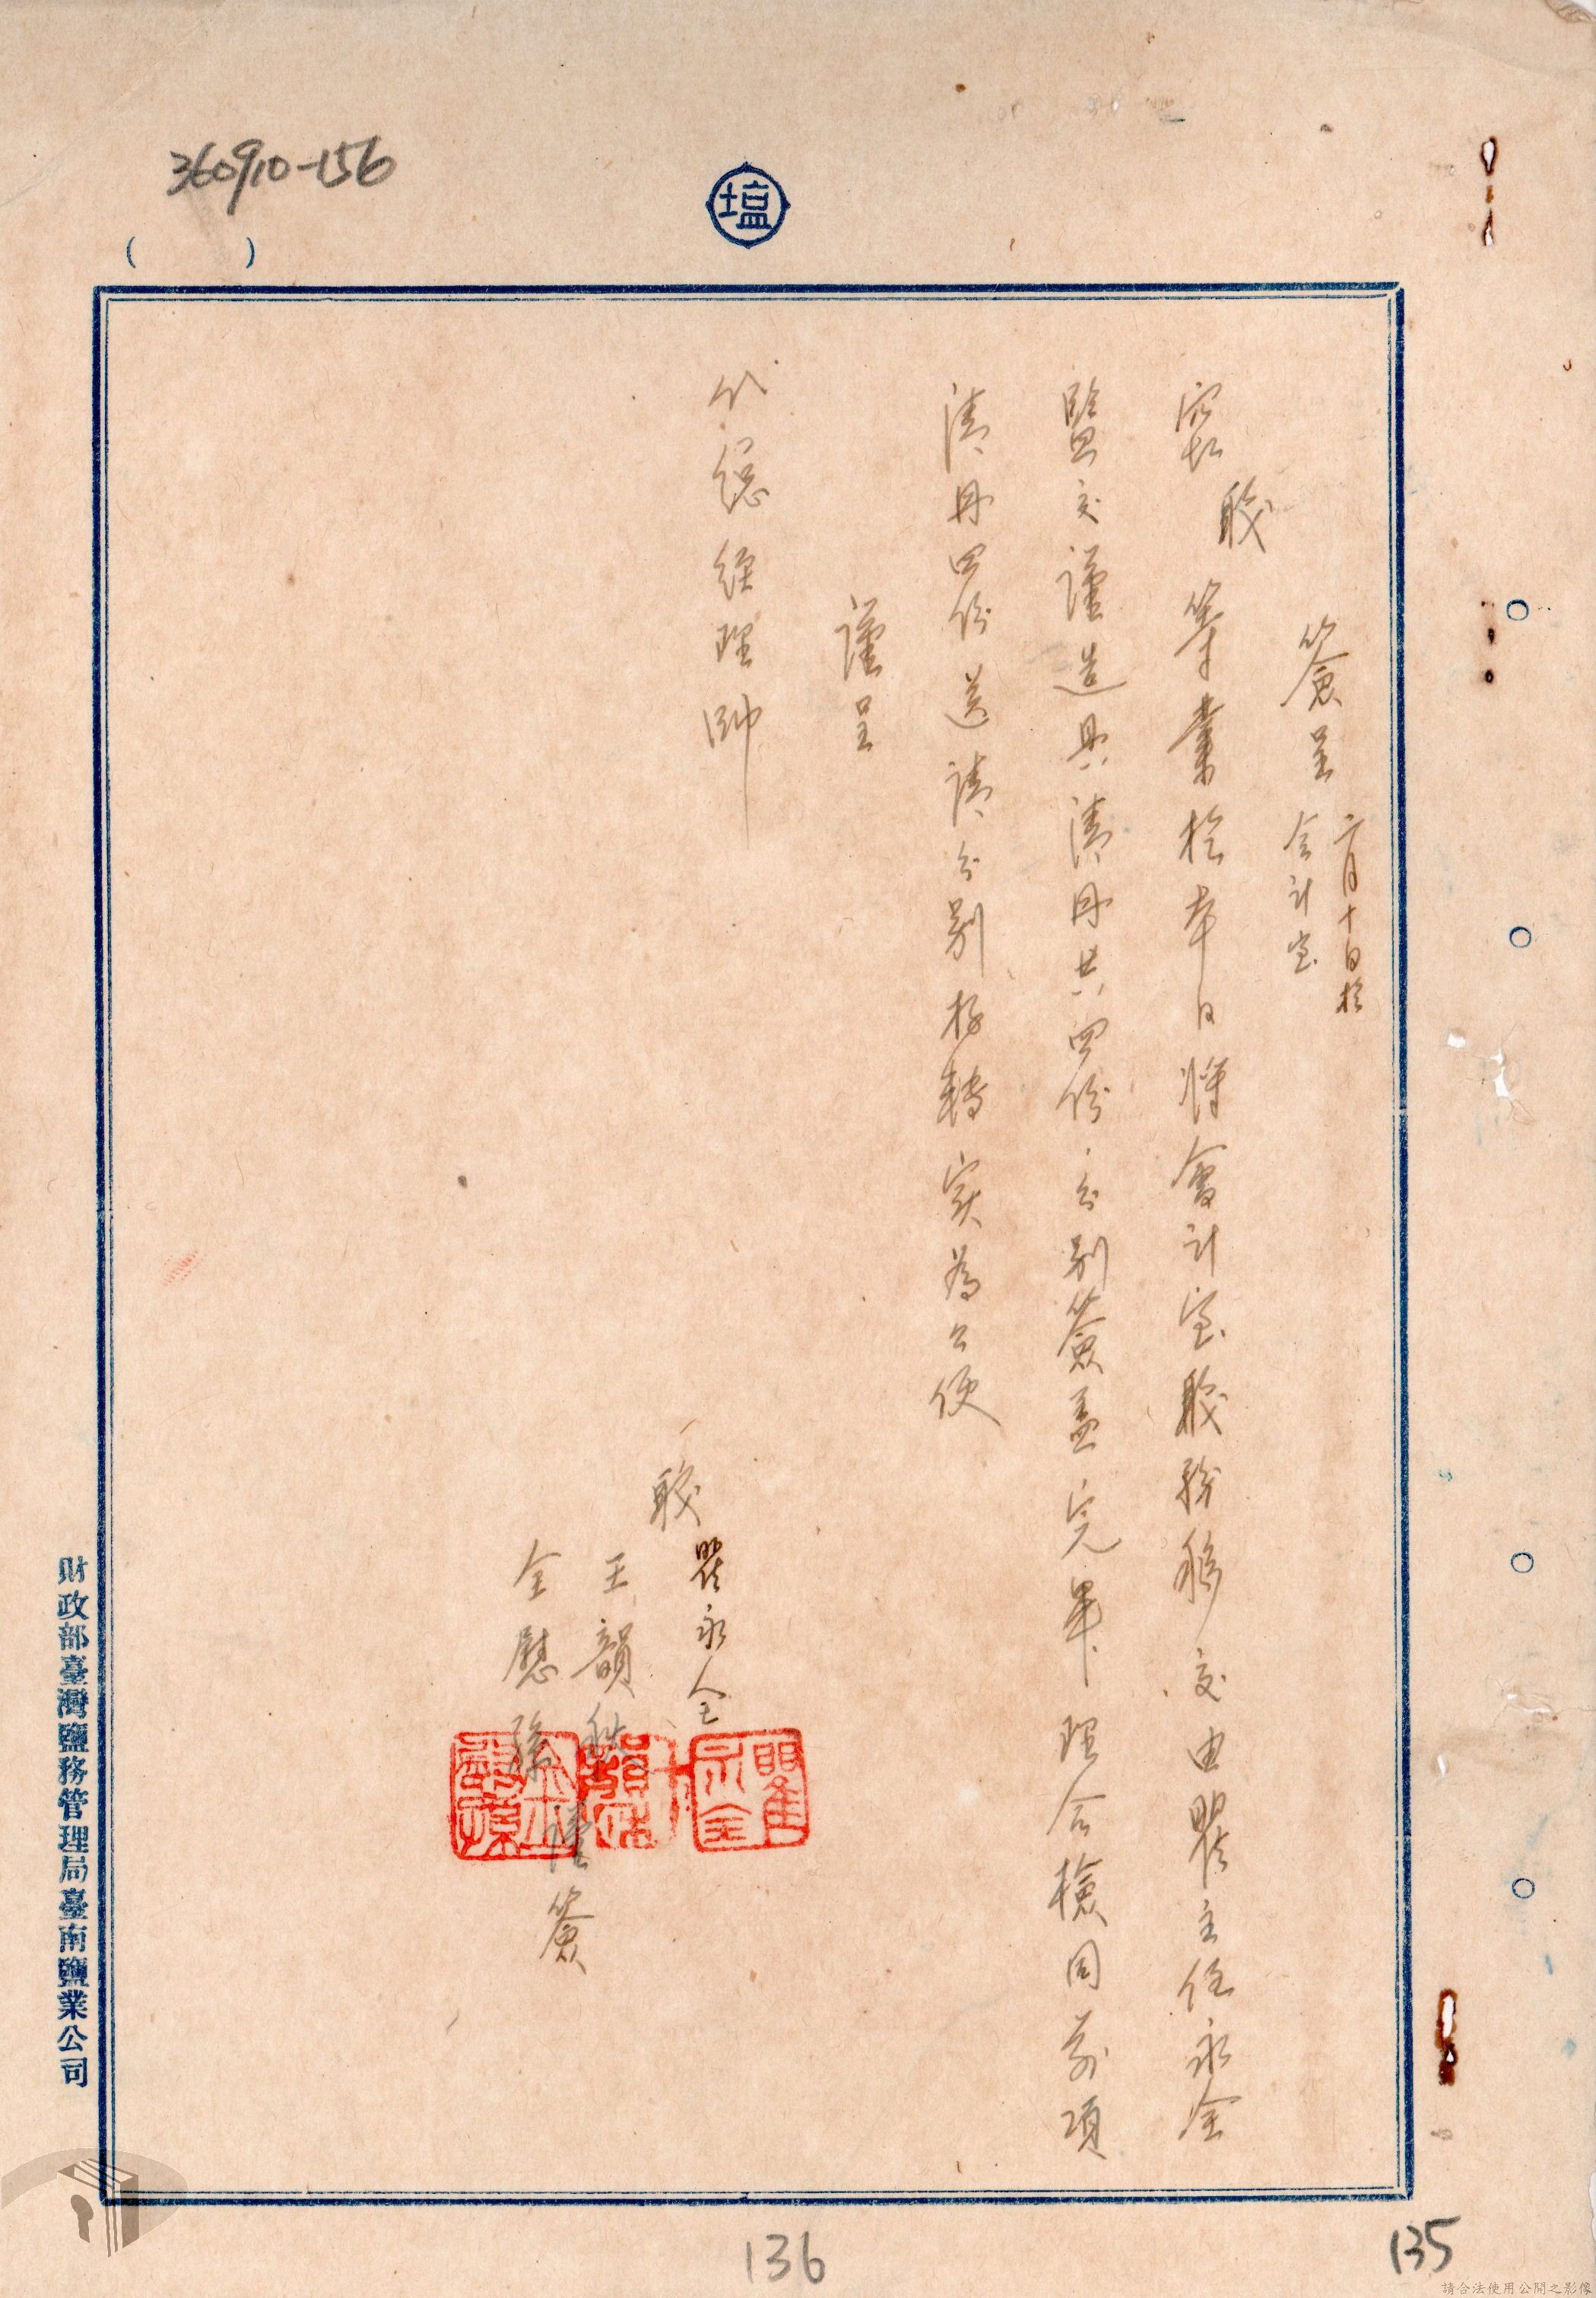 360910-156
塩
(　　)
簽呈 二月十日於
会計室
窃職等業於本日將會計室职務移交由瞿主任永全
監交謹造具清册共四份分别簽盖完畢理合檢同前項
清册四份送請分别存轉実為公便
謹呈
總經理帥
职 瞿永全
王韻秋
金慰孫 謹簽
瞿永全
王韻秋
金慰孫
財政部臺灣鹽務管理局臺南鹽業公司
136
135
請合法使用公開之影像